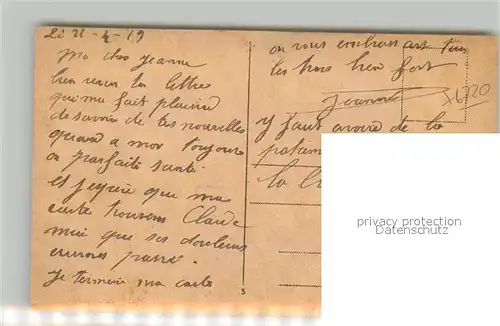 Le 21-4-19
Ma cher Jeanne
bien recu ta lettre
qui ma fait plaisir
de savoir de tes nouvelles
quand a moi toujours
en parfaite santé
et j'espère que ma
carte trouvera Claude
mieu que ses douleurs
passé
Je termine ma carte
en vous embrassant tous
les trois bien fort
Jeanne
y faut avoire de la
la
privacy protection
Datenschutz
5